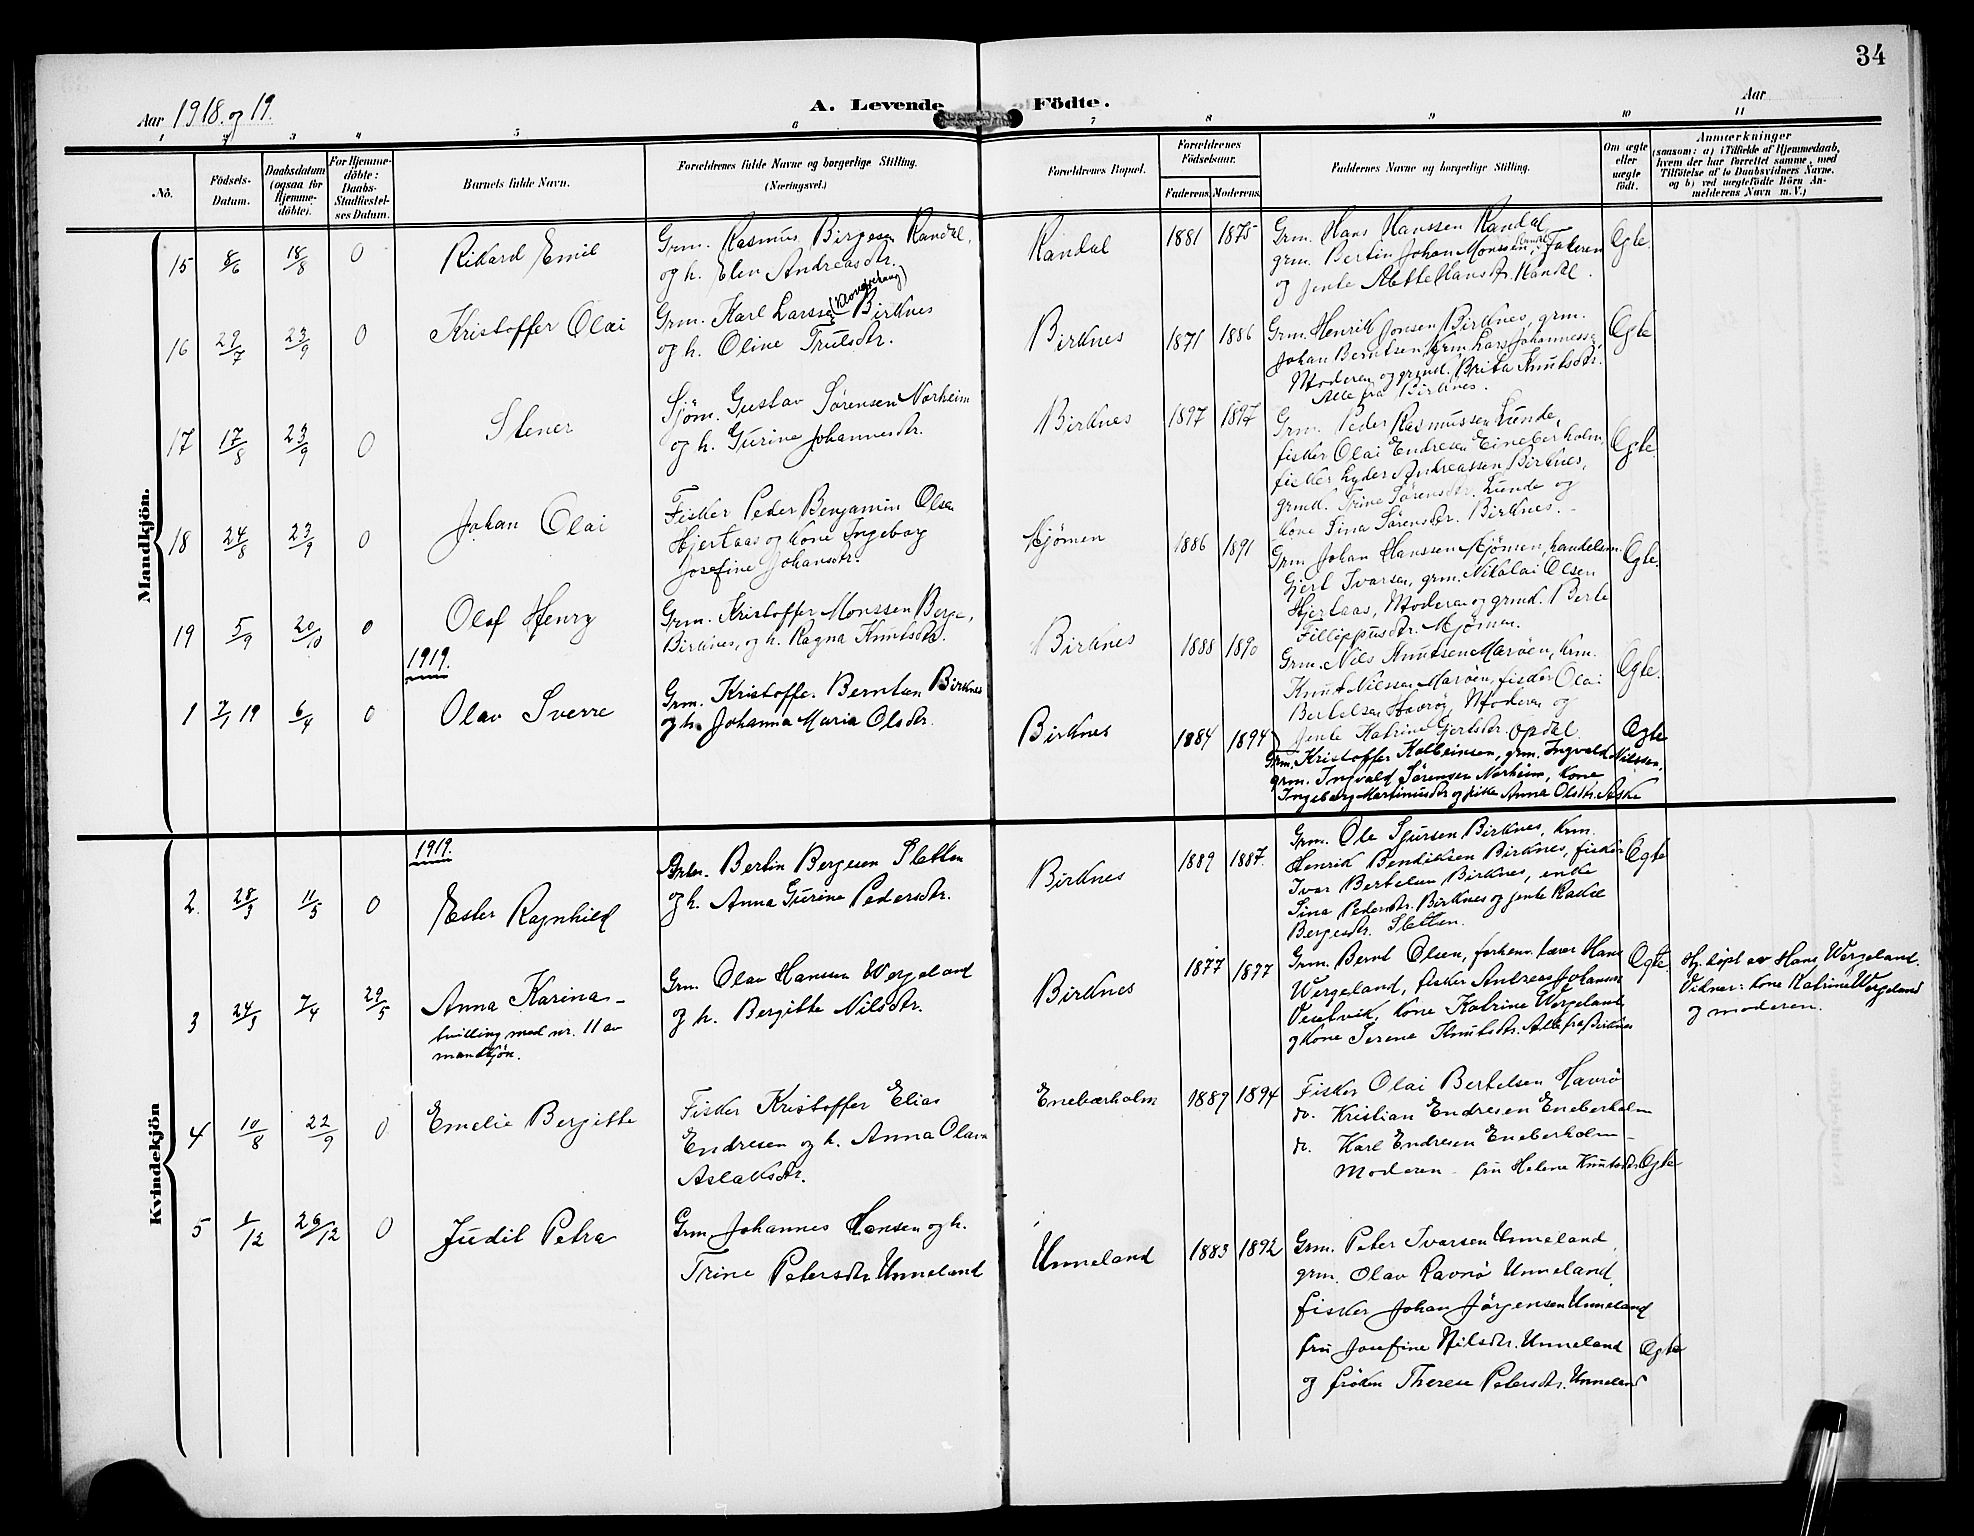 34
Aar 1918. og 19.
A. Levende Födte.
Aar
1 2 3 4 5 6 7 8 9 10 11
No.
Födsels-Datum.
Daabsdatum (ogsaa for Hjemme-döbte).
For Hjemme-döbte: Daabs-Stadfæstel-ses Datum.
Barnets fulde Navn.
Forældrenes fulde Navne og borgerlige Stilling. (Næringsvei.)
Forældrenes Bopæl.
Forældrenes Födselsaar.
Faderens. Moderens.
Faddernes Navne og borgerlige Stilling.
Om ægte eller uægte födt.
Anmærkninger
(saasom: a) i Tilfælde af Hjemmedaab,
hvem der har forrettet samme, med
Tilföielse af to Daabsvidners Navne,
og b) ved uægtefödte Börn An-
melderens Navn m. V.)
Mandkjön.
15 8/6 18/8 0 Rikard Emil
Grm. Rasmus Birgesen Randal,
og h. Elen Andreasdtr.
Randal 1881 1875
Grm. Hans Hanssen Randal
grm. Bertin Johan Monssen, Faderen
og jente Mette Hansdtr. Randal.
Egte.
16 29/7 23/9 0 Kristoffer Olai
Grm. Karl Larssen Birknes
og h. Oline Trulsdtr.
Birknes 1871 1886
Grm. Henrik Jonsen Birknes, grm.
Johan Berntsen, Grm. Lars Johannessen,
Moderen og grmd. Brita Knutsdtr.
Alle fra Birknes.
Egte
17 17/8 23/9 0 Stener
Sjöm. Gustav Sörensen Norheim
og h. Gurine Johannesdtr.
Birknes 1897 1897
Grm. Peder Rasmussen Lunde,
fisker Olai Endresen Eineberholm,
fisker Lyder Andreassen Birknes,
grmd. Trine Sörensdtr. Lunde og
kone Sina Sörensdtr. Birknes.
Egte.
18 24/8 23/9 0 Johan Olai
Fisker Peder Benjamin Olsen
Hjertaas og kone Ingeborg
Josefine Johansdtr.
Mjömen 1886 1891
Grm Johan Hanssen Mjömen, handelsm.
Gjert Ivarsen, grm. Nikolai Olsen
Hjertaas, Moderen og grmd. Berte
Fillippusdtr. Mjömen.
Egte.
19 5/9 20/10 0 Olaf Henry
Grm. Kristoffer Monssen Berge,
Birknes, og h. Ragna Knutsdtr.
Birknes 1888 1890
Grm. Nils Knutsen Maröen, krm.
Knut Nilssen Maröen, fisker Olai
Bertelsen Havröy, Moderen og
jente Katrine Gjertsdtr. Opdal.
Egte.
1919.
1 7/1 19 6/4 0 Olav Sverre
Grm. Kristoffer Berntsen Birknes
og h. Johanna Maria Olsdtr.
Birknes 1884 1894
Grm. Kristoffer Kolbeinsen, grm. Ingvald Nilssen,
grm. Ingvald Sörensen Norheim, kone
Ingeborg Martinusdtr og pike Anna Olsdtr. Aske
Egte
Kvindekjön
1919.
2. 28/3 11/5 0 Ester Ragnhild
Bertin Bergesen Sletten
og h. Anna Gurine Pedersdtr.
Birknes 1889 1887.
Grm. Ole Sjursen Birknes, krm.
Henrik Bendiksen Birknes, fisker
Ivar Bertelsen Birknes, enke
Sina Pedersdtr. Birknes og jente Rakel
Bergesdtr. Sletten.
Egte
3 24/3 7/4 29/5 Anna Karina –
tvilling med nr. 11 av
mandkjön.
Grm. Olav Hansen Wergeland
og h. Bergitte Nilsdtr.
Birknes 1877 1877
Grm. Bernt Olsen, forhenv. lærer Hans
Wergeland, fisker Andreas Johansen
kone Katrine Wergeland
og kone Serene Knutsdtr. Alle fra Birknes
Egte.
Hj. döpt av Hans Wergeland.
Vidner: kone Katrine Wergeland
og moderen.
4 10/8 22/9 0 Emelie Bergitte
Fisker Kristoffer Elias
Endresen og h. Anna Olava
Aslaksdtr.
Enebærholm 1889 1894
Fisker Olai Bertelsen Havrö
do. Kristian Endresen Eneberholm
do. Karl Endresen Eneberholm –
Moderen – fru Helene Knutsdtr
Egte
5 1/12 26/12 0 Judit Petra
Grm. Johannes Hansen og h.
Trine Petersdtr. Unneland
Unneland 1883 1892
Grm. Peter Ivarsen Unneland
grm. Olav Ravnö Unneland,
fisker Johan Jörgensen Unneland
fru Josefine Nilsdtr. Unneland
og fröken Therese Petersdtr. Unneland
Egte